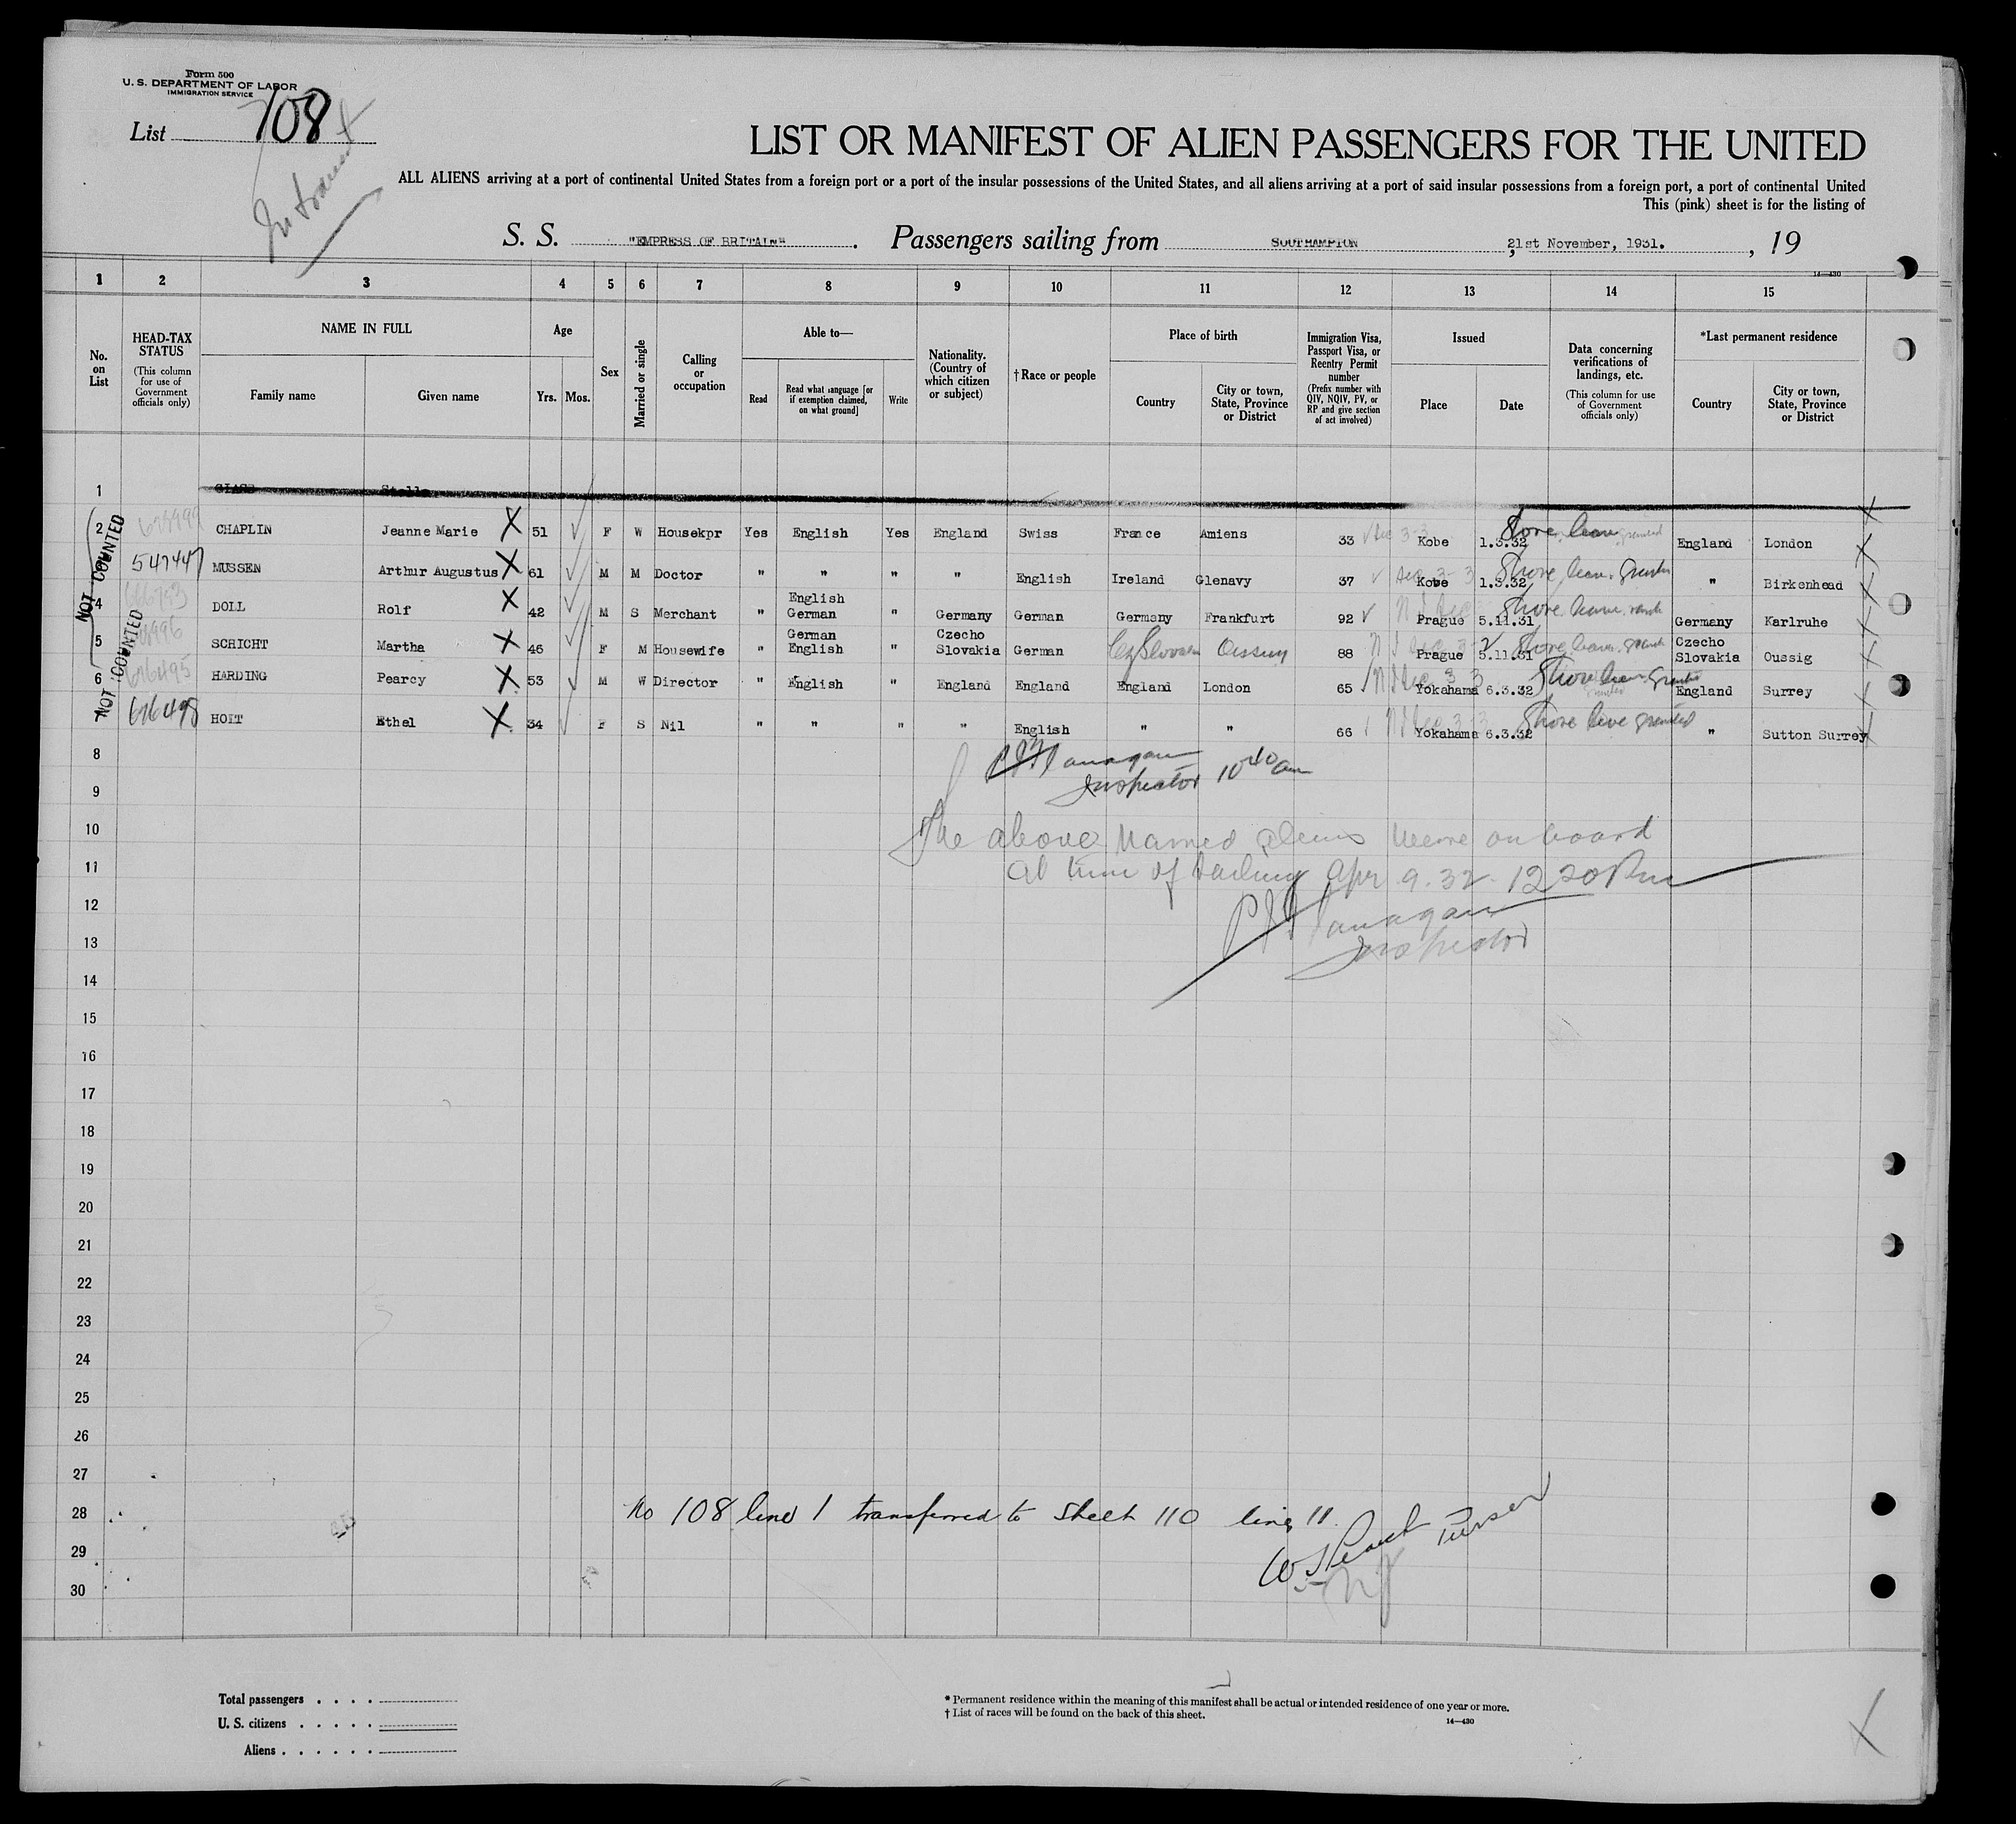 Form 500
U. S. DEPARTMENT OF LABOR
IMMIGRATION SERVICE
List 108
In transit
LIST OR MANIFEST OF ALIEN PASSENGERS FOR THE UNITED
ALL ALIENS arriving at a port of continental United States from a foreign port or a port of the insular possessions of the United States, and all aliens arriving at a port of said insular possessions from a foreign port, a port of continental United
This (pink) sheet is for the listing of
S. S. "EMPRESS OF BRITAIN". Passengers sailing from SOUTHAMPTON, 21st November, 1931., 19
14—430
1 2 3 4 5 6 7 8 9 10 11 12 13 14 15
No. on List
HEAD-TAX STATUS (This column for use of Government officials only)
NAME IN FULL
Family name
Given name
Age
Yrs. Mos.
Sex
Married or single
Calling or occupation
Able to—
Read
Read what language [or if exemption claimed, on what ground]
Write
Nationality. (Country of which citizen or subject)
†Race or people
Place of birth
Country
City or town, State, Province or District
Immigration Visa, Passport Visa, or Reentry Permit number (Prefix number with QIV, NQIV, PV, or RP and give section of act involved)
Issued
Place
Date
Data concerning verifications of landings, etc. (This column for use of Government officials only)
*Last permanent residence
Country
City or town, State, Province or District
NOT COUNTED
NOT COUNTED
1 Stella
2 CHAPLIN Jeanne Marie X 51 F W Housekpr Yes English Yes England Swiss France Amiens 33 Kobe 1.3.32 Shore leave granted England London
547447 MUSSEN Arthur Augustus X 61 M M Doctor " " " " English Ireland Glenavy 37 Kobe 1.3.32 Shore leave granted " Birkenhead
4 DOLL Rolf X 42 M S Merchant " English German " Germany German Germany Frankfurt 92 Prague 5.11.31 Shore leave Germany Karlruhe
5 SCRICHT Martha X 46 F M Housewife " German English " Czecho Slovakia German Cz Slovakia Oussig 88 Prague 5.11.31 Shore leave Czecho Slovakia Oussig
6 676495 HARDING Pearcy X 53 M W Director " English " England England England London 65 Yokahama 6.3.32 Shore leave granted England Surrey
7 676498 HOIT Ethel X 34 F S Nil " " " " English " " 66 Yokahama 6.3.32 Shore leave granted " Sutton Surrey
8
P J Flanagan
Inspector 10 40 am
9
10 The above named aliens were on board
11 at time of sailing Apr. 9. 32 12 20 Pm
12 P J Flanagan
13 Inspector
14
15
16
17
18
19
20
21
22
23
24
25
26
27
28 No 108 line 1 transferred to sheet 110 line 11.
29 Purser
30
Total passengers
U. S. citizens
Aliens
* Permanent residence within the meaning of this manifest shall be actual or intended residence of one year or more.
† List of races will be found on the back of this sheet.
14—430